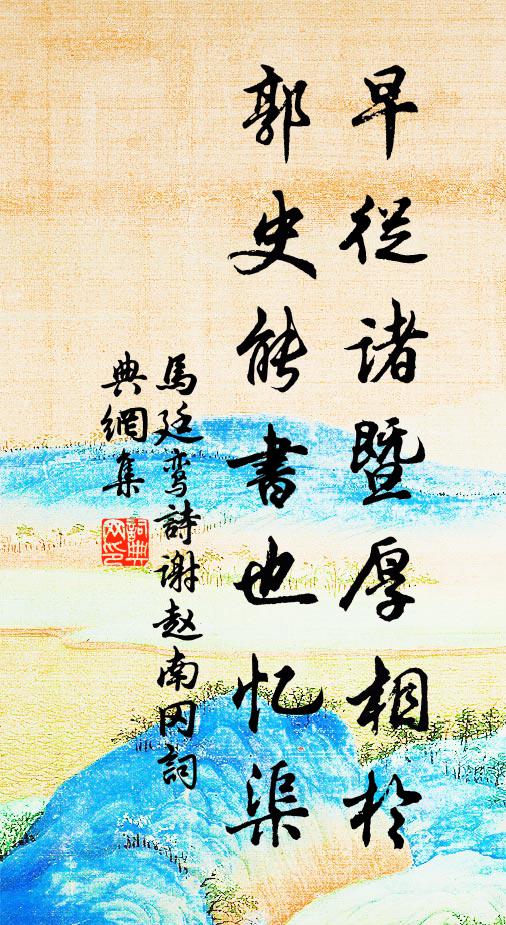 早從诸暨厚相於
郭史能書也忆渠
馬廷鸾詩谢赵南冈詞
典網集
詞典
网印